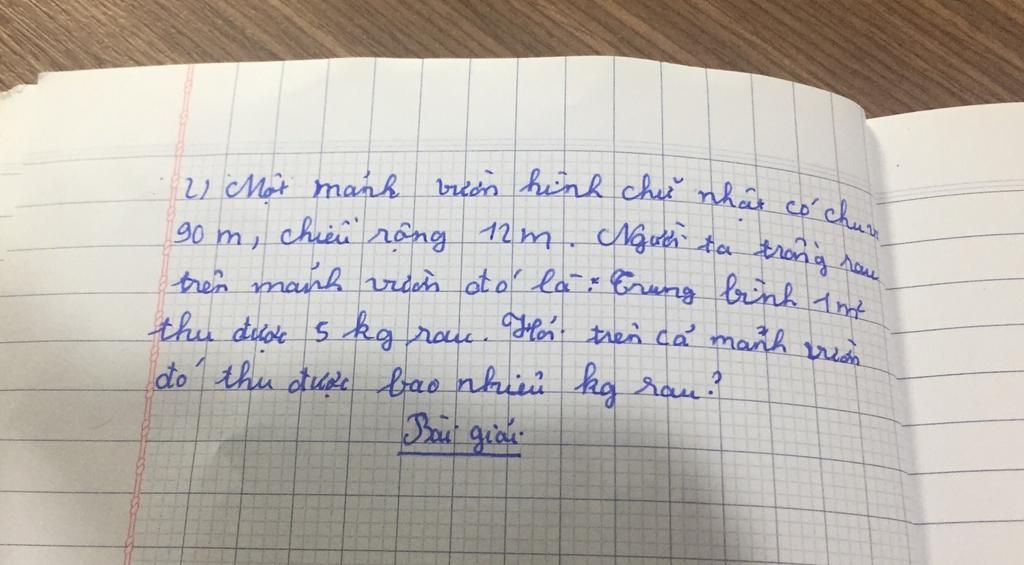 2) Một mảnh vườn hình chữ nhật có chu vi
90 m, chiều rộng 12m. Người ta trồng rau
trên mảnh vườn đó là: Trung bình 1m²
thu được 5 kg rau. Hỏi trên cả mảnh vườn
đó thu được bao nhiêu kg rau?
Bài giải